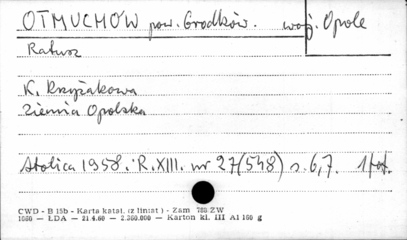 OTMUCHÓW pow. Grodków. woj. Opole
Ratusz
K. Krzyżakowa
Ziemia Opolska
Stolica 1958. R. XIII. nr 27(548) s. 6,7. 1 fot.
CWD - B 15b - Karta katal. (z liniat) - Zam 768.ZW
1050 - LDA - 21.4.60 - 2.300.000 - Karton kl. III A1 160 g